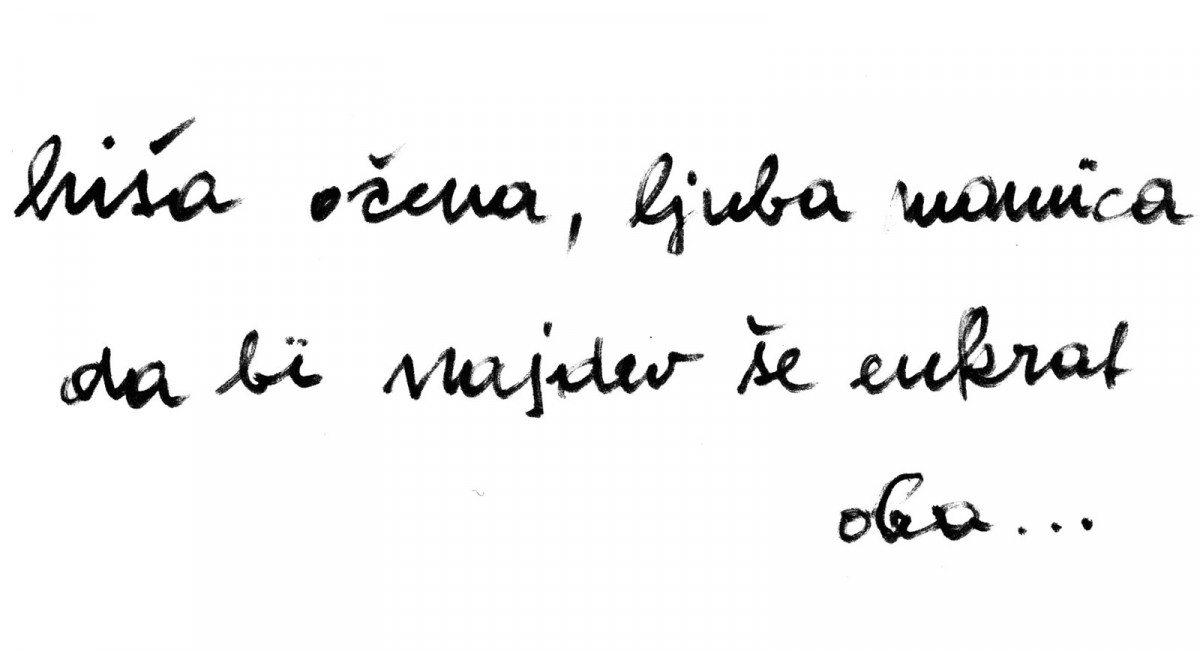 hiša očena, ljuba mamïca
da bï najdev še enkrat
oba...